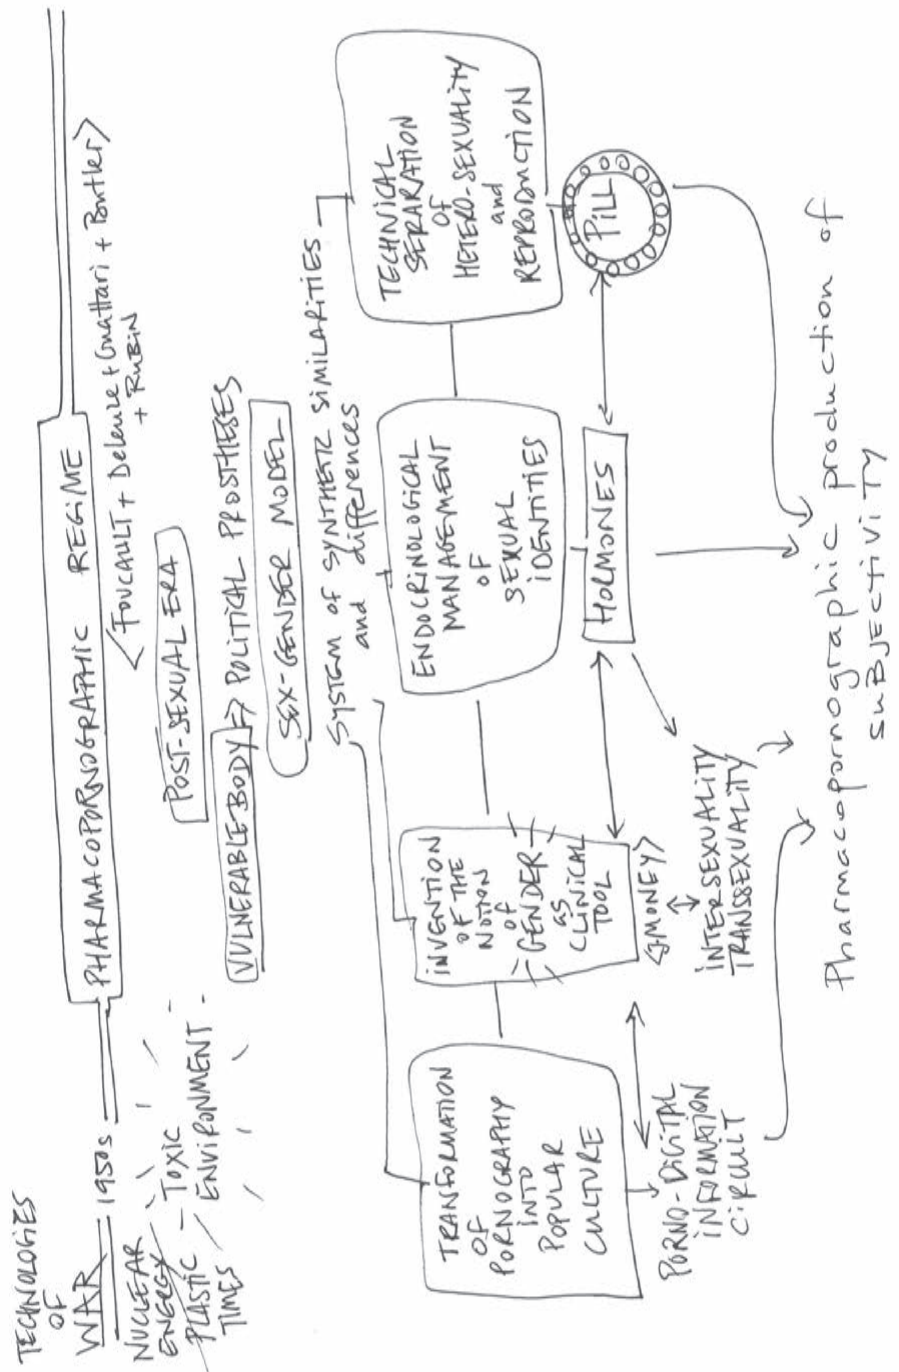 TECHNOLOGIES
OF
WAR
1950s
PHARMACOPORNOGRAPHIC REGIME
NUCLEAR
ENERGY
PLASTIC
TIMES
TOXIC
ENVIRONMENT
<FOUCAULT + Deleuze + Guattari + Butler>
+ RUBIN
POST-SEXUAL ERA
VULNERABLE BODY => POLITICAL PROSTHESES
SEX-GENDER MODEL
SYSTEM OF SYNTHETIC SIMILARITIES
and differences
TRANSFORMATION
OF
PORNOGRAPHY
INTO
POPULAR
CULTURE
INVENTION
OF THE
NOTION
OF
GENDER
AS
CLINICAL
TOOL
ENDOCRINOLOGICAL
MANAGEMENT
OF
SEXUAL
IDENTITIES
TECHNICAL
SERARATION
OF
HETERO-SEXUALITY
and
REPRODUCTION
PORNO-DIGITAL
INFORMATION
CIRCUIT
<J.MONEY>
INTERSEXUALITY
TRANSSEXUALITY
HORMONES
PILL
Pharmacopornographic production of
SUBJECTIVITY